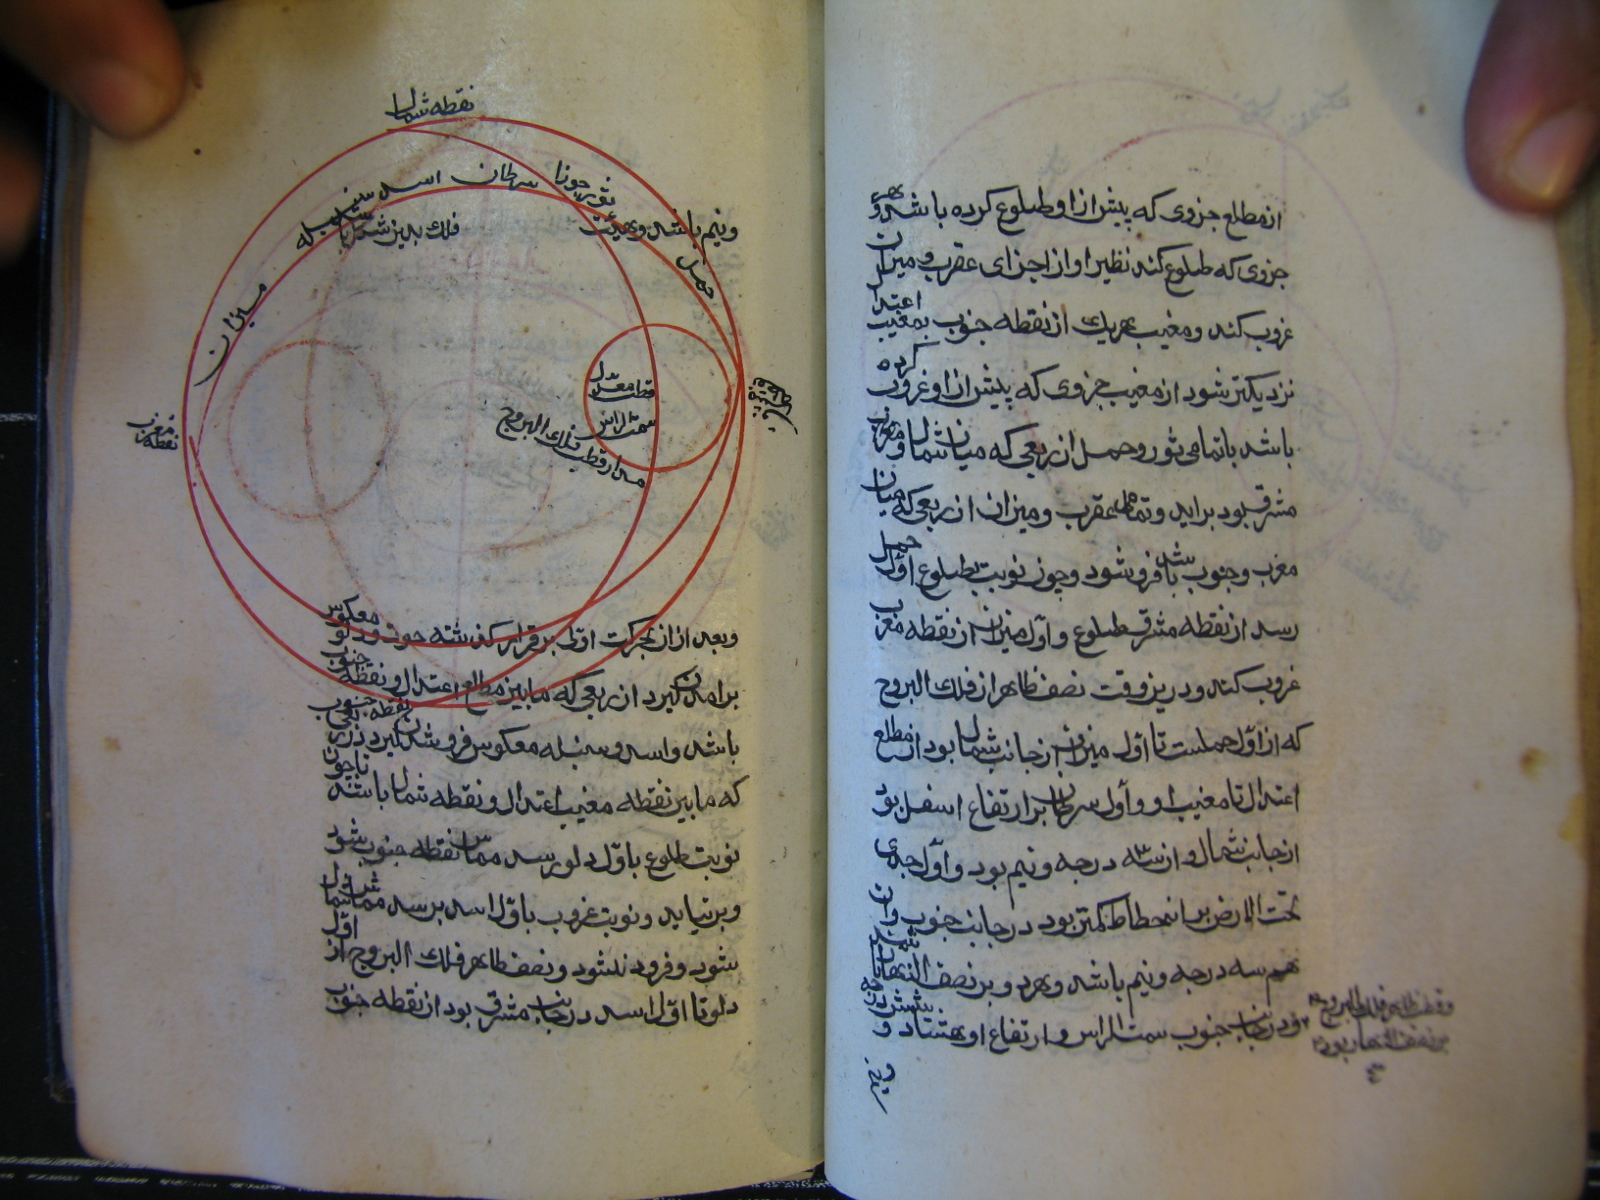 از مطلع جزوی که پیش از او طلوع کرده باشد و هر
جزوی که طلوع کند نظیر او از اجزای عقرب و میزان
غروب کند و مغیب هریک از نقطه جنوب بمغیب اعتدال
نزدیکتر شود از مغیب جزوی که پیش از او غروب کرده
باشد با تمامی ثور و حمل از ربعی که میان شمال و
مشرق بود براید و تمامی عقرب و میزان از ربعی که میان
مغرب و جنوب باشد فرو شود و چون نوبت بطلوع اول حمل
رسد از نقطه مشرق طلوع و اول میزان از نقطه مغرب
غروب کند و درین وقت نصف ظاهر از فلک البروج
که از اول حملست تا اول میزان از جانب شمال بود از مطلع
اعتدال تا مغیب او و اول سرطان بر ارتفاع اسفل بود
از جانب شمال و از سه درجه و نیم بود و اول جدی
تحت الارض بر انحطاط کمتر بود در جانب جنوب و آن
هم سه درجه و نیم باشد و بر نصف النهار
و در جانب جنوب سمت الراس و ارتفاع او هشتاد و شش درجه
و قطب ظاهر فلک البروج
بر نصف النهار بود
و نیم
نقطه شمال
جوزا
سرطان
اسد
سنبله
میزان
ثور
حمل
و نیم باشد و هیئت
فلک بدین شکل باشد
قطب معدل
سمت الراس
مدار قطب فلک البروج
نقطه مغرب
نقطه
و بعد از ان بحرکت اولی بر قرار گذشته حوت و دلو معکوس
برامدن گیرد از ربعی که مابین مطلع اعتدال و نقطه جنوب
باشد و اسد و سنبله معکوس فرو شدن گیرد در ربعی
که مابین نقطه مغیب اعتدال و نقطه شمال باشند تا چون
نوبت طلوع باول دلو رسد مماس نقطه جنوب شود
و برنیاید و نوبت غروب باول اسد برسد مماس شمال
شود و فرو نشود و نصف ظاهر فلک البروج از اول
دلو تا اول اسد در جانب مشرق بود از نقطه جنوب